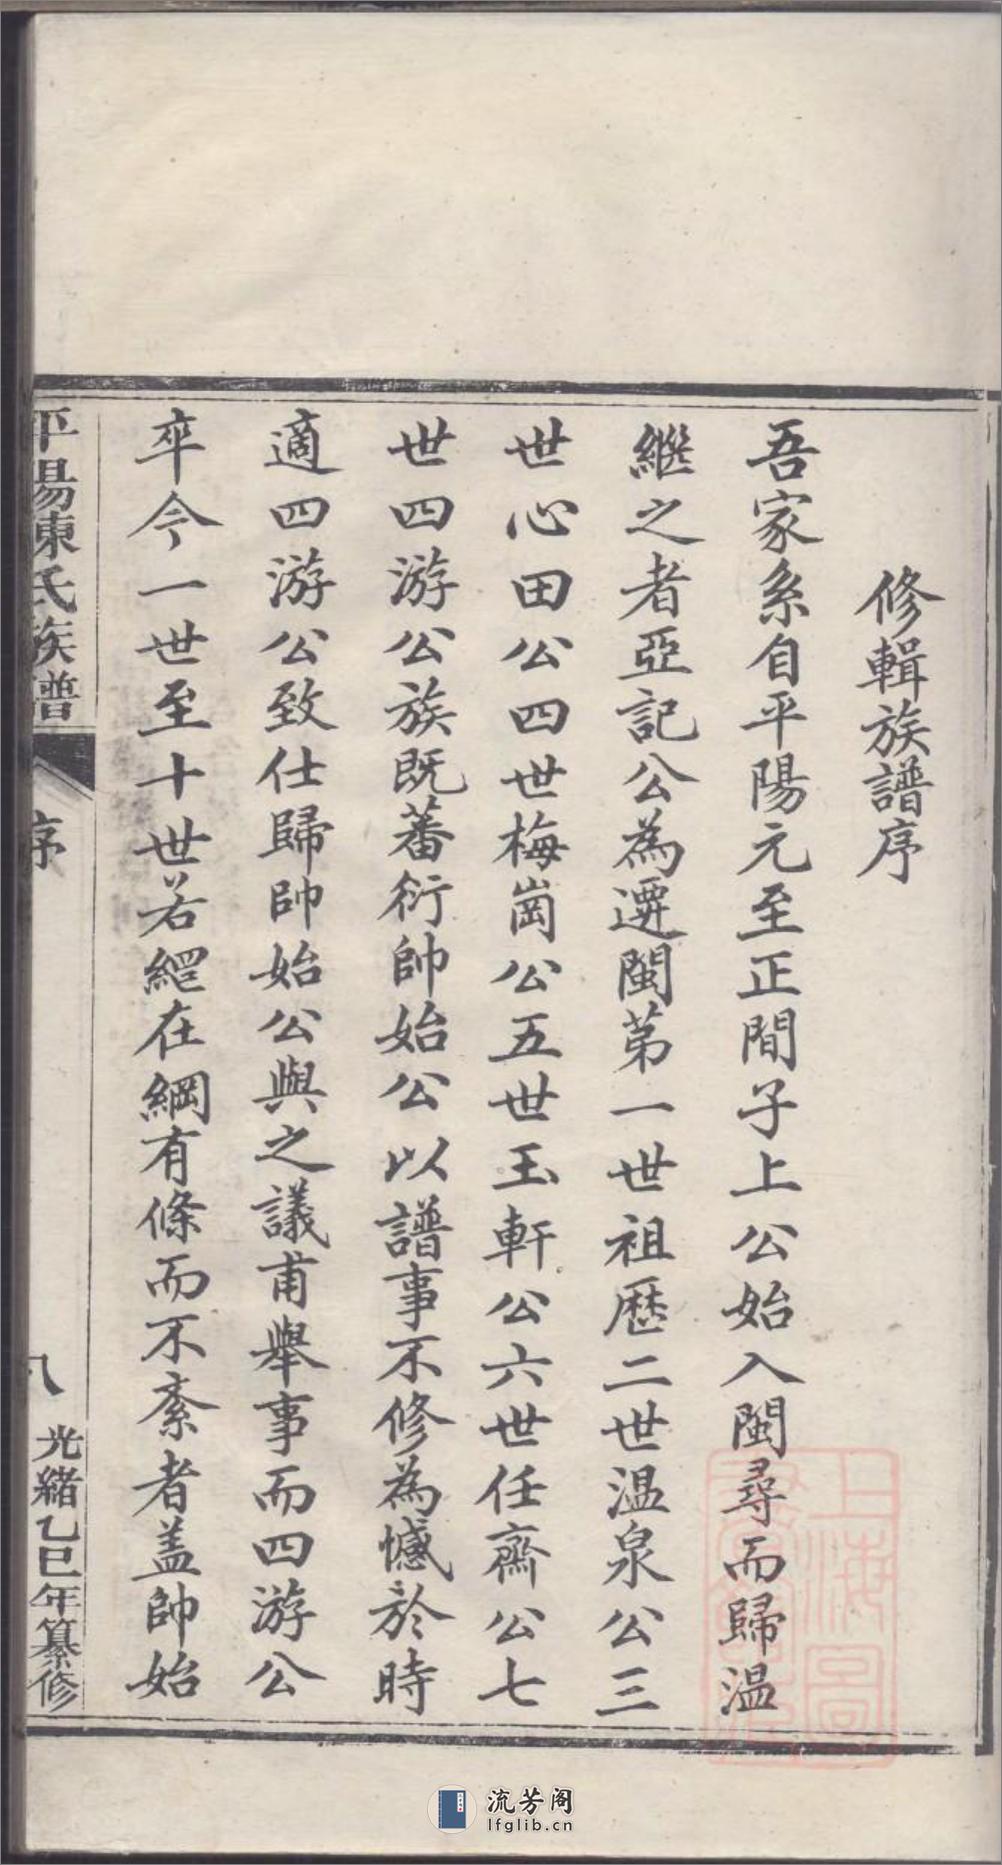 修輯族譜序
吾家系自平陽元至正間子上公始入閩尋而歸温
繼之者亞記公為遷閩第一世祖歴二世温泉公三
世心田公四世梅崗公五世玉軒公六世任齋公七
世四游公族既蕃衍帥始公以譜事不修為憾於時
適四游公致仕歸帥始公與之議甫舉事而四游公
卒今一世至十世若網在綱有條而不紊者盖帥始
平陽陳氏族譜
序
八
光緒乙巳年纂修
上海圖
流芳阁
lfglib.cn